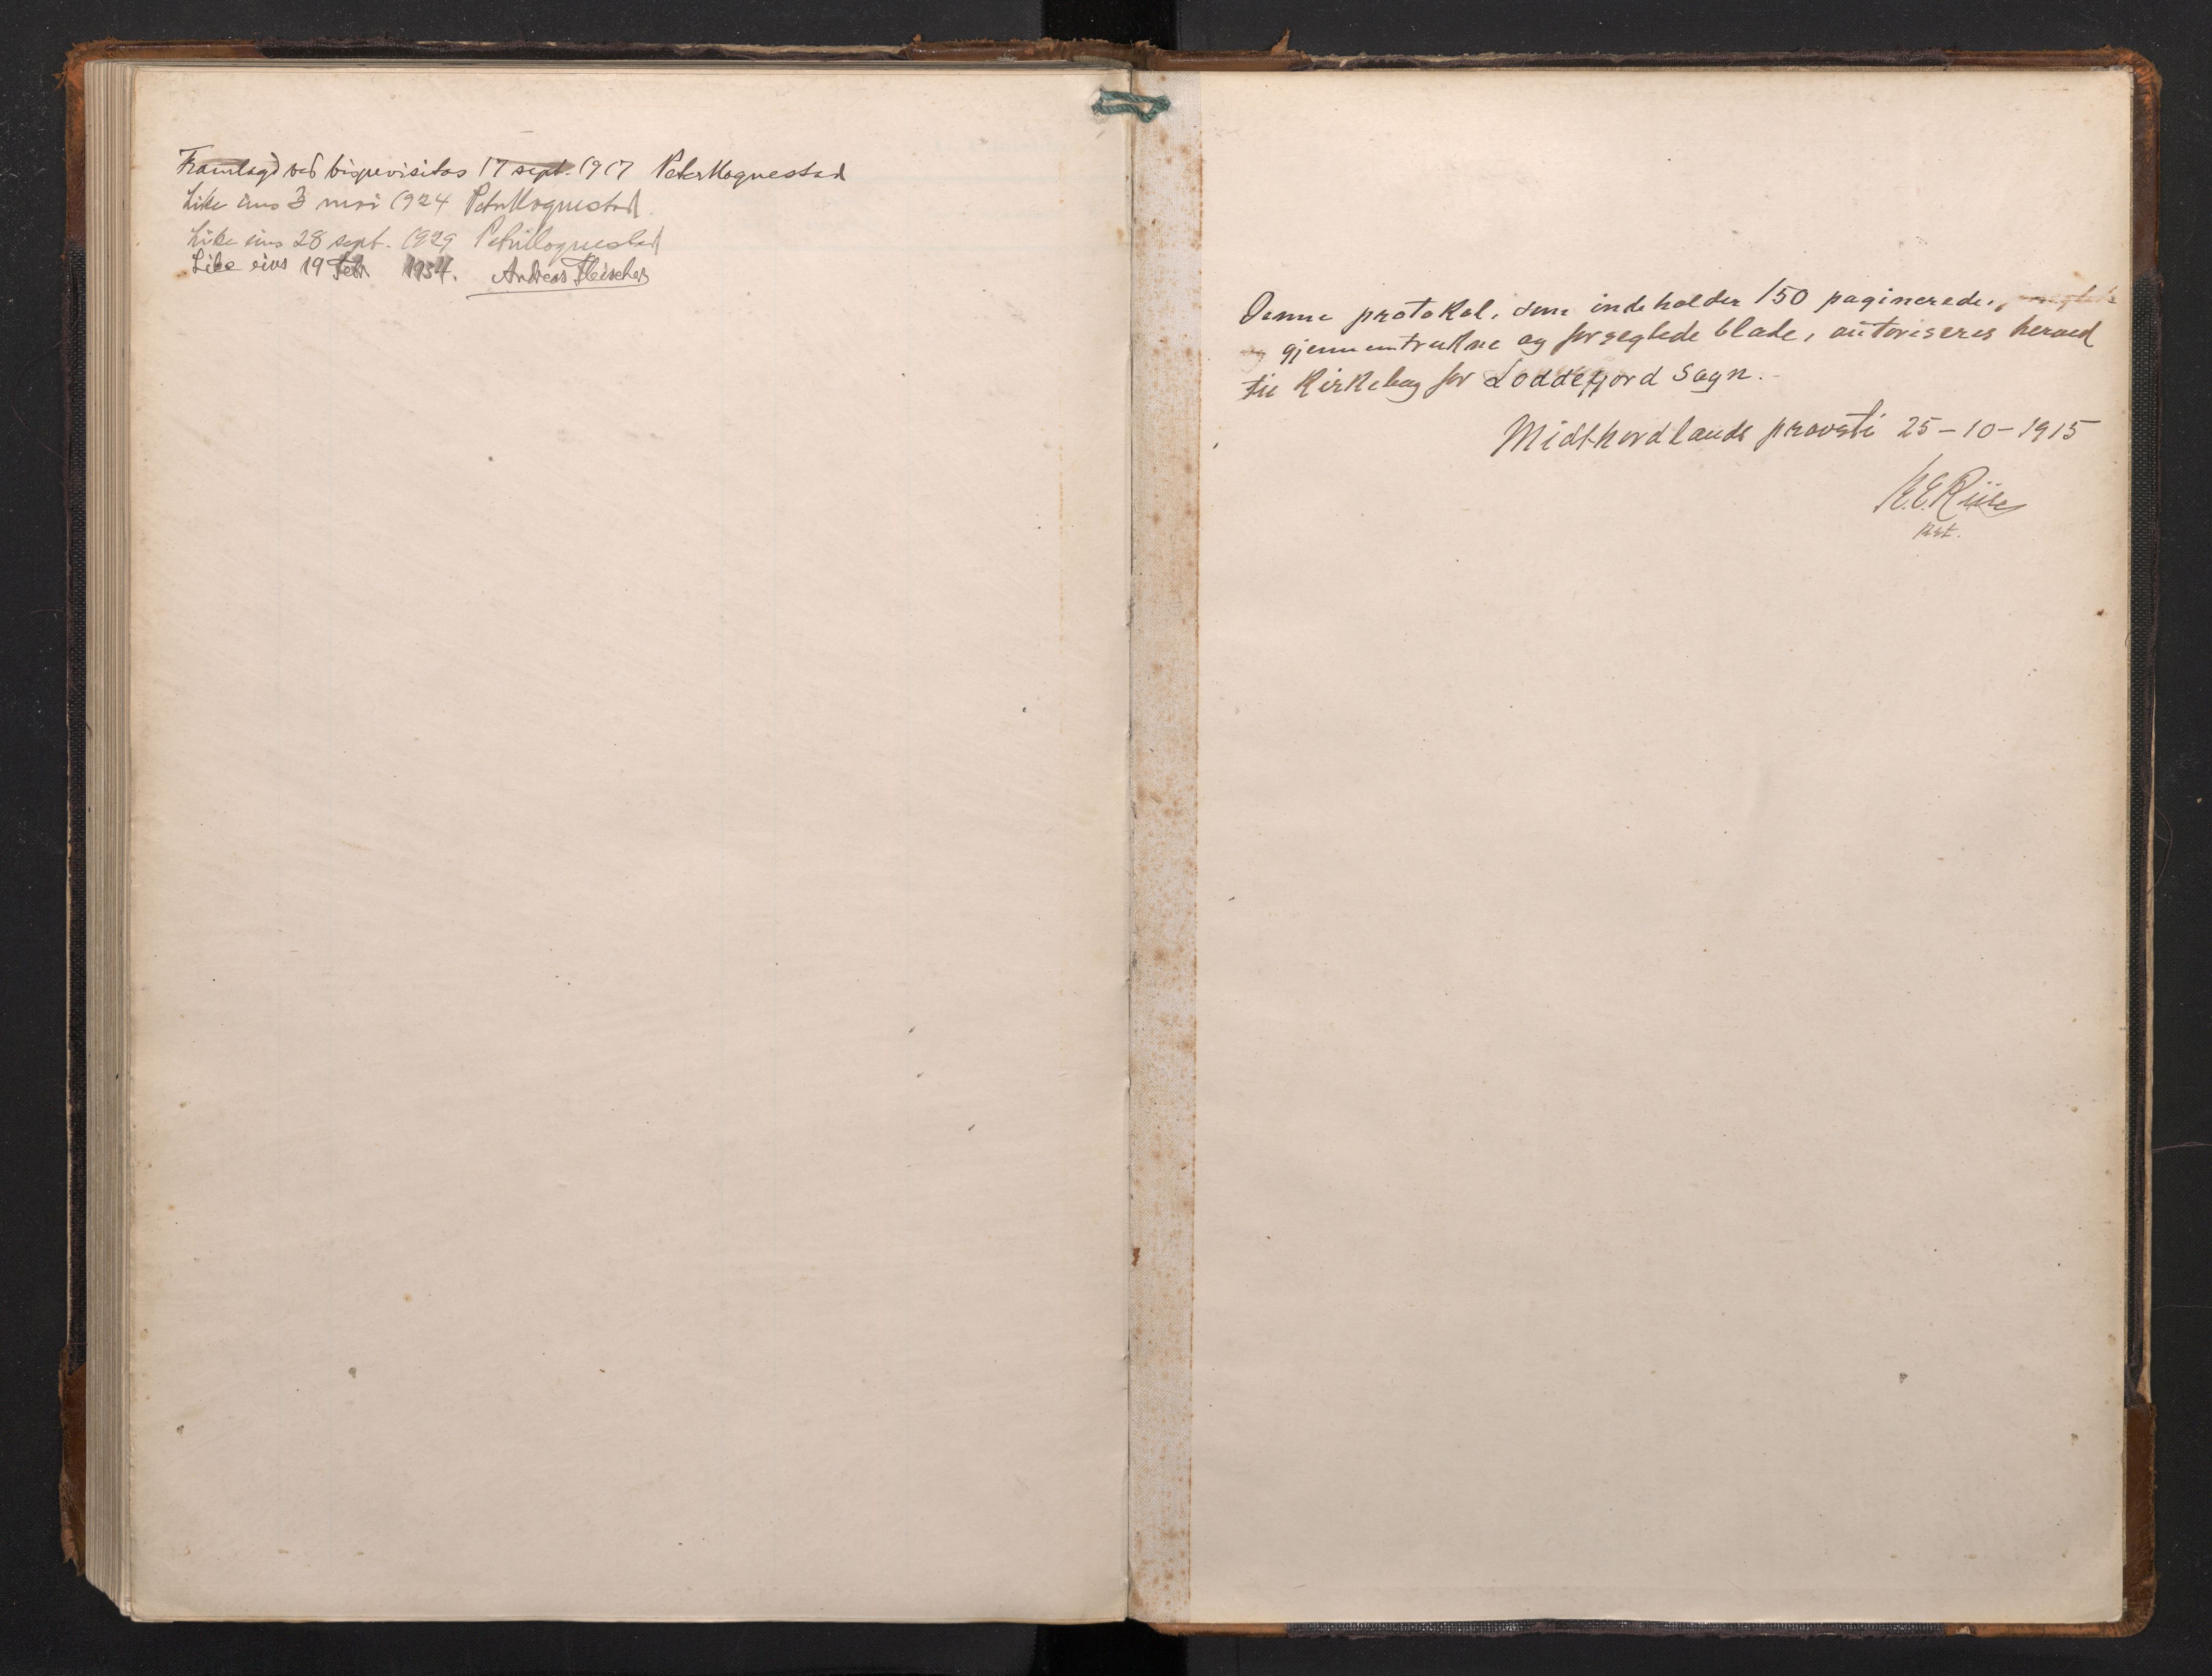 Framlagd ved bispevisitas 17 sept. 1917 Peter Hognestad
Like eins 3 mai 1924 Peter Hognestad
Like eins 28 sept. 1929 Peter Hognestad
Like eins 19 Febr 1934. Andreas Fleischer
Denne protokol, som indeholder 150 paginerede,
gjennemtrukne og forseglede blade, autoriseres herved
til Kirkebog for Loddefjord Sogn.
Midthordlands provsti 25-10-1915